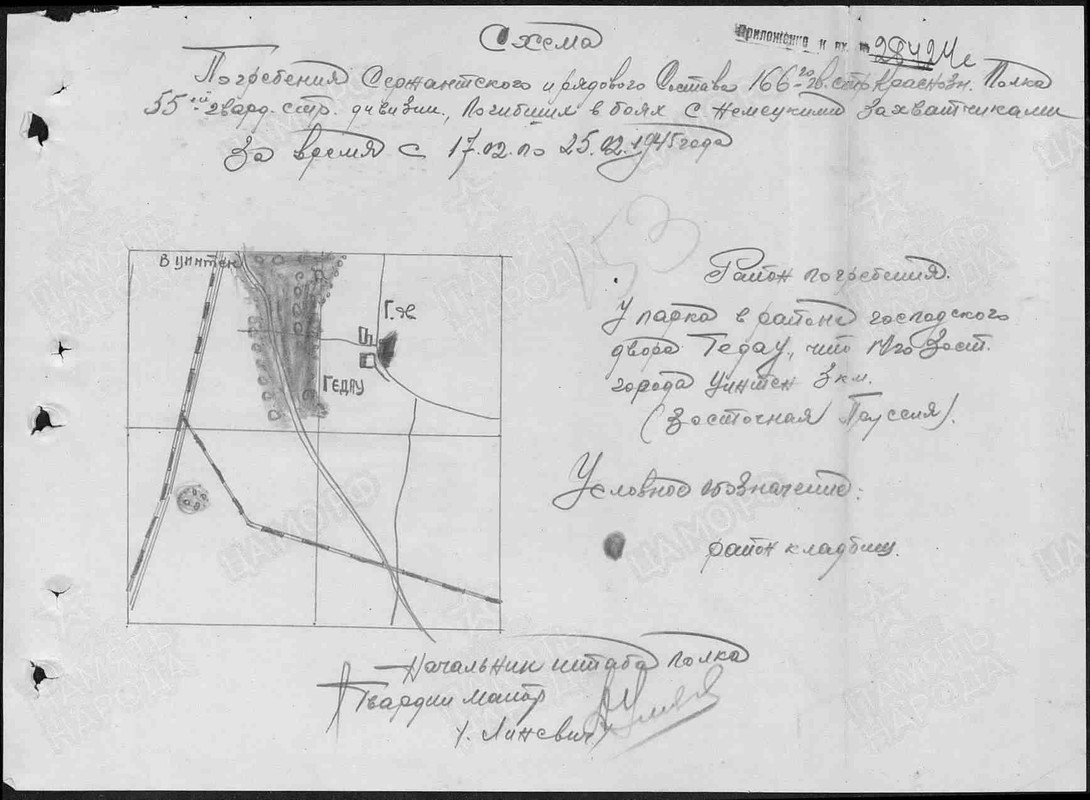 Схема
Приложение к вх. № 28424с
Погребения Сержантского и рядового Состава 166го гв. стр. Краснозн. Полка
55ой гвард. стр. дивизии, Погибших в боях с немецкими захватчиками
за время с 17.02. по 25.02.1945 года
153
В Цинтен
Г.дв
Гедау
Район погребения.
У парка в районе господского
двора Гедау, что
города Цинтен 3 км.
(Восточная Пруссия).
Условное обозначение:
район кладбищ.
Начальник штаба полка
Гвардии майор
/. Линевич/
ЦАМО РФ
ПАМЯТЬ НАРОДА